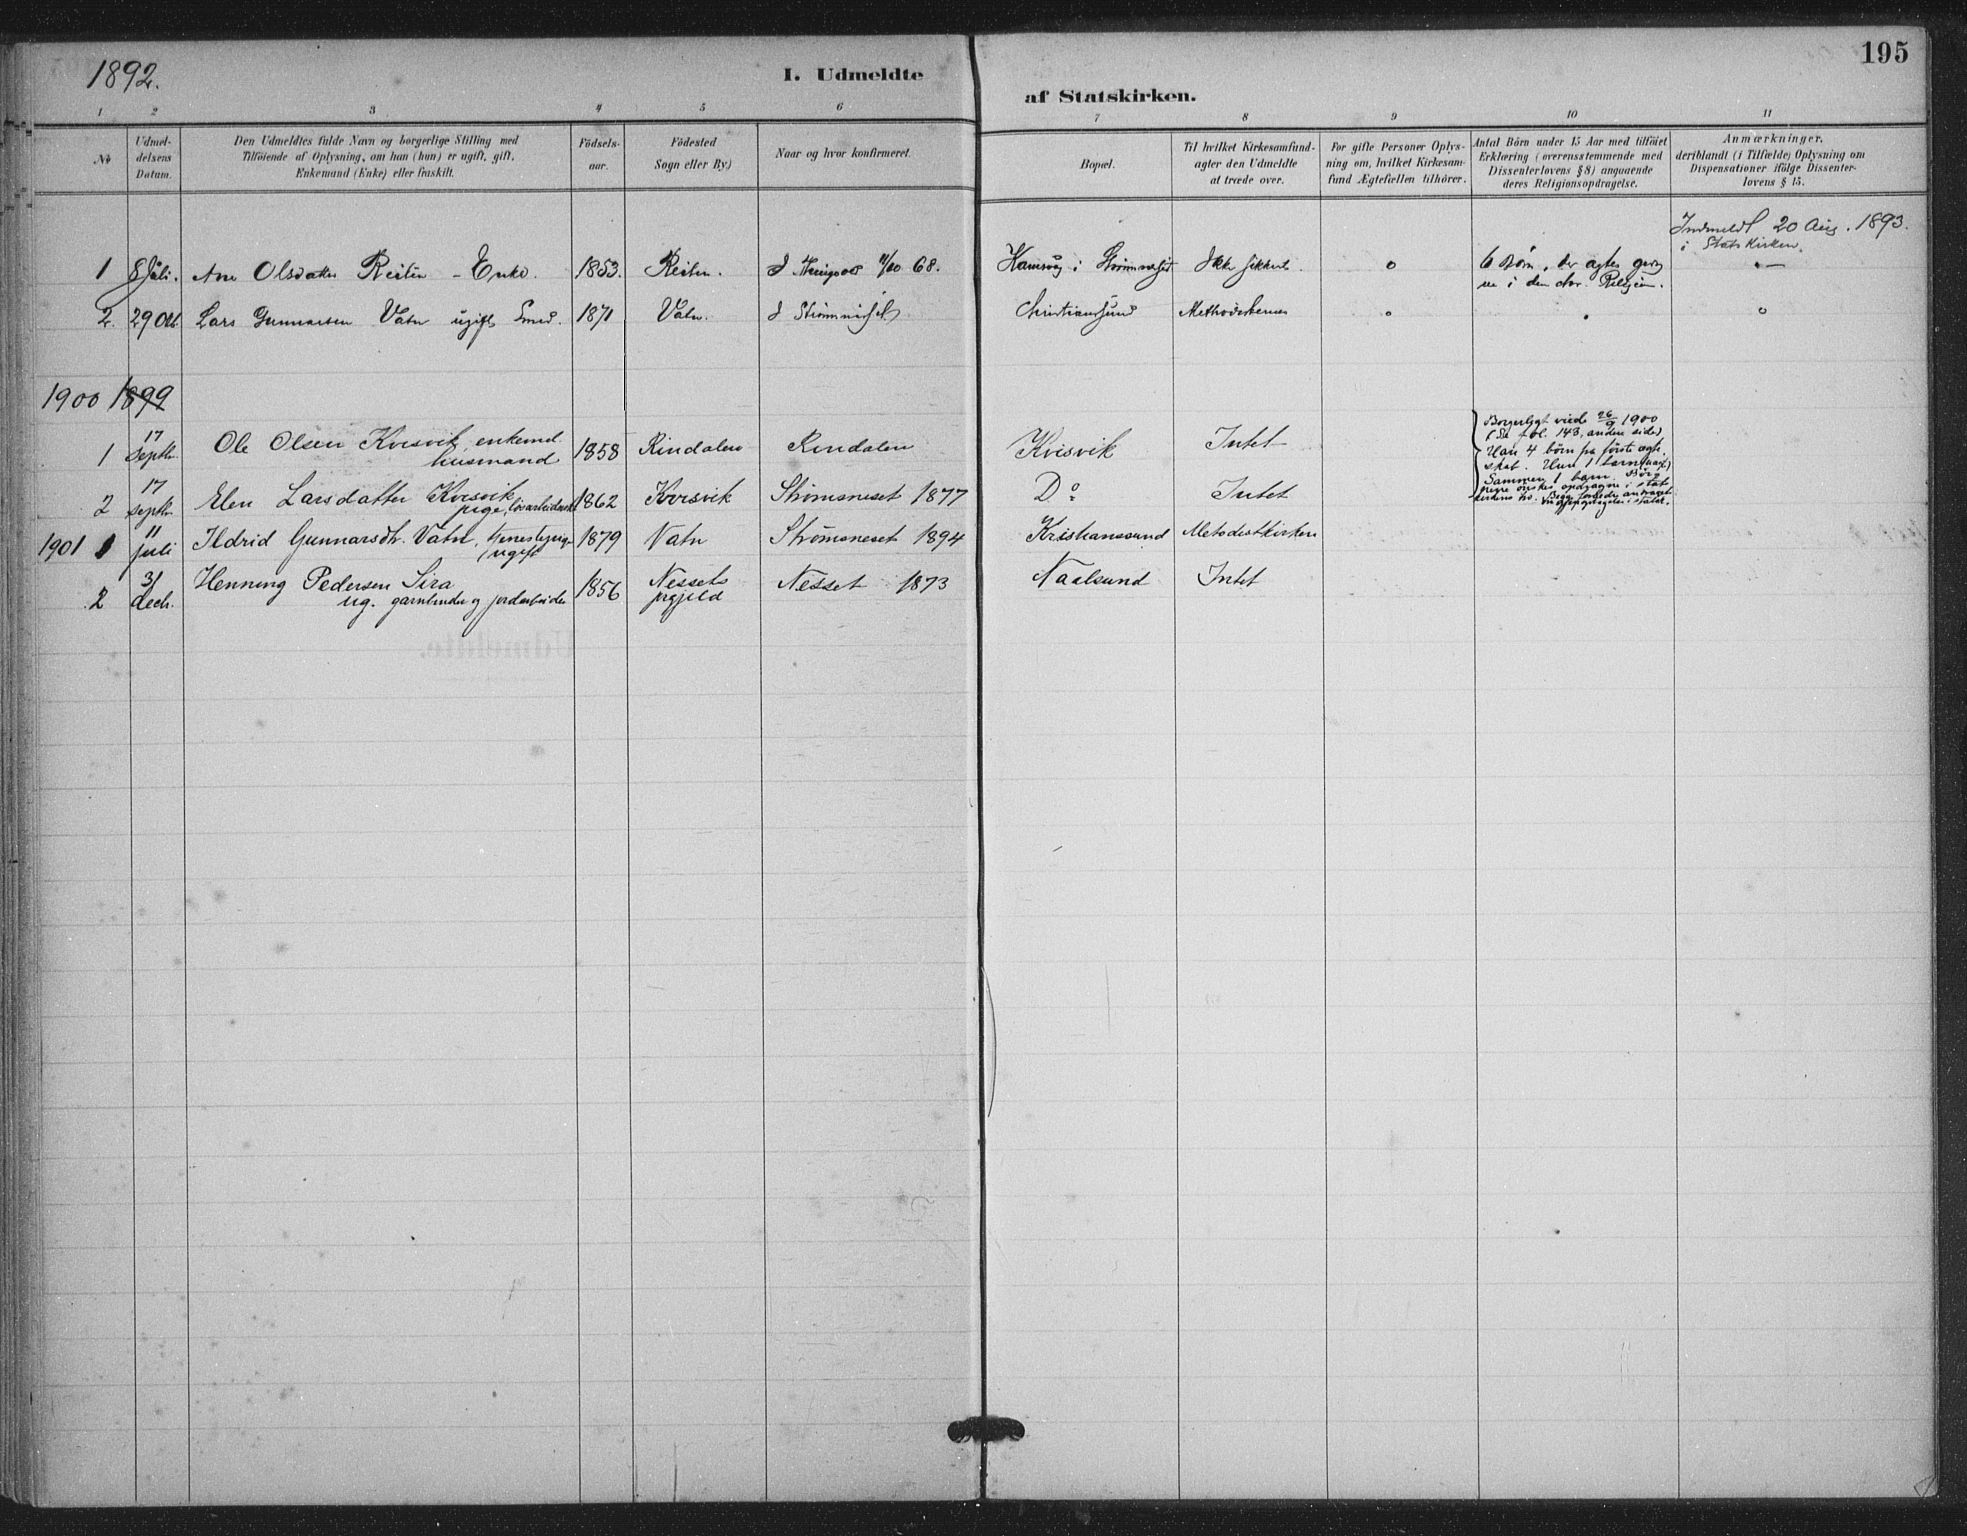 1892.
I. Udmeldte
af Statskirken.
195
1 2 3 4 5 6 7 8 9 10 11
No
Udmel-
delsens
Datum.
Den Udmeldtes fulde Navn og borgerlige Stilling med
Tilföiende af Oplysning, om han (hun) er ugift, gift,
Enkemand (Enke) eller fraskilt.
Födsels-
aar.
Födested
Sogn eller By)
Naar og hvor konfirmeret.
Bopæl.
Til hvilket Kirkesamfund-
agter den Udmeldte
at træde over.
For gifte Personer Oplys-
ning om, hvilket Kirkesam-
fund Ægtefællen tilhörer.
Antal Börn under 15 Aar med tilföiet
Erklæring (overensstemmende med
Dissenterlovens § 8) angaaende
deres Religionsopdragelse.
Anmærkninger,
deriblandt (i Tilfælde) Oplysning om
Dispensationer ifölge Dissenter-
lovens § 15.
Indmeldt 20 Aug. 1893.
i Statskirken.
1 8 Juli. Ane Olsdatter Reitin - Enke. 1853. Reitin. 68. i Ikke sikkert. o 6 Börn, der agtes
i den chr. Religion.
2. 29 Okt Lars Gunnarsen Vatn ugift Smed. 1871 Vatn. I Christianssund Methodisternes o o
1900 1899
1 17 septbr. Ole Olsen Kvisvik, enkemd.
husmand 1858 Rindalen Rindalen Kvisvik Intet
Borgerligt viede 26/9 1900
(Se fol. 143, anden side)
Han 4 börn fra förste ægte-
skab. Hun 1 barn
Sammen 1 barn. Börn
2 17 septbr. Elen Larsdatter Kvisvik
pige, 1862 Kvisvik Strömsneset 1877 Do Intet
1901 1 11 juli Ildrid Gunnarsdtr. Vatn, tjenestepige
ugift 1879 Vatn Strömsneset 1894 Kristianssund Metodistkirken
2 31 decb. Henning Pedersen Sira
ug. garnbinder og jordarbeider 1856 Nessets
prgjeld Nesset 1873 Naalsund Intet